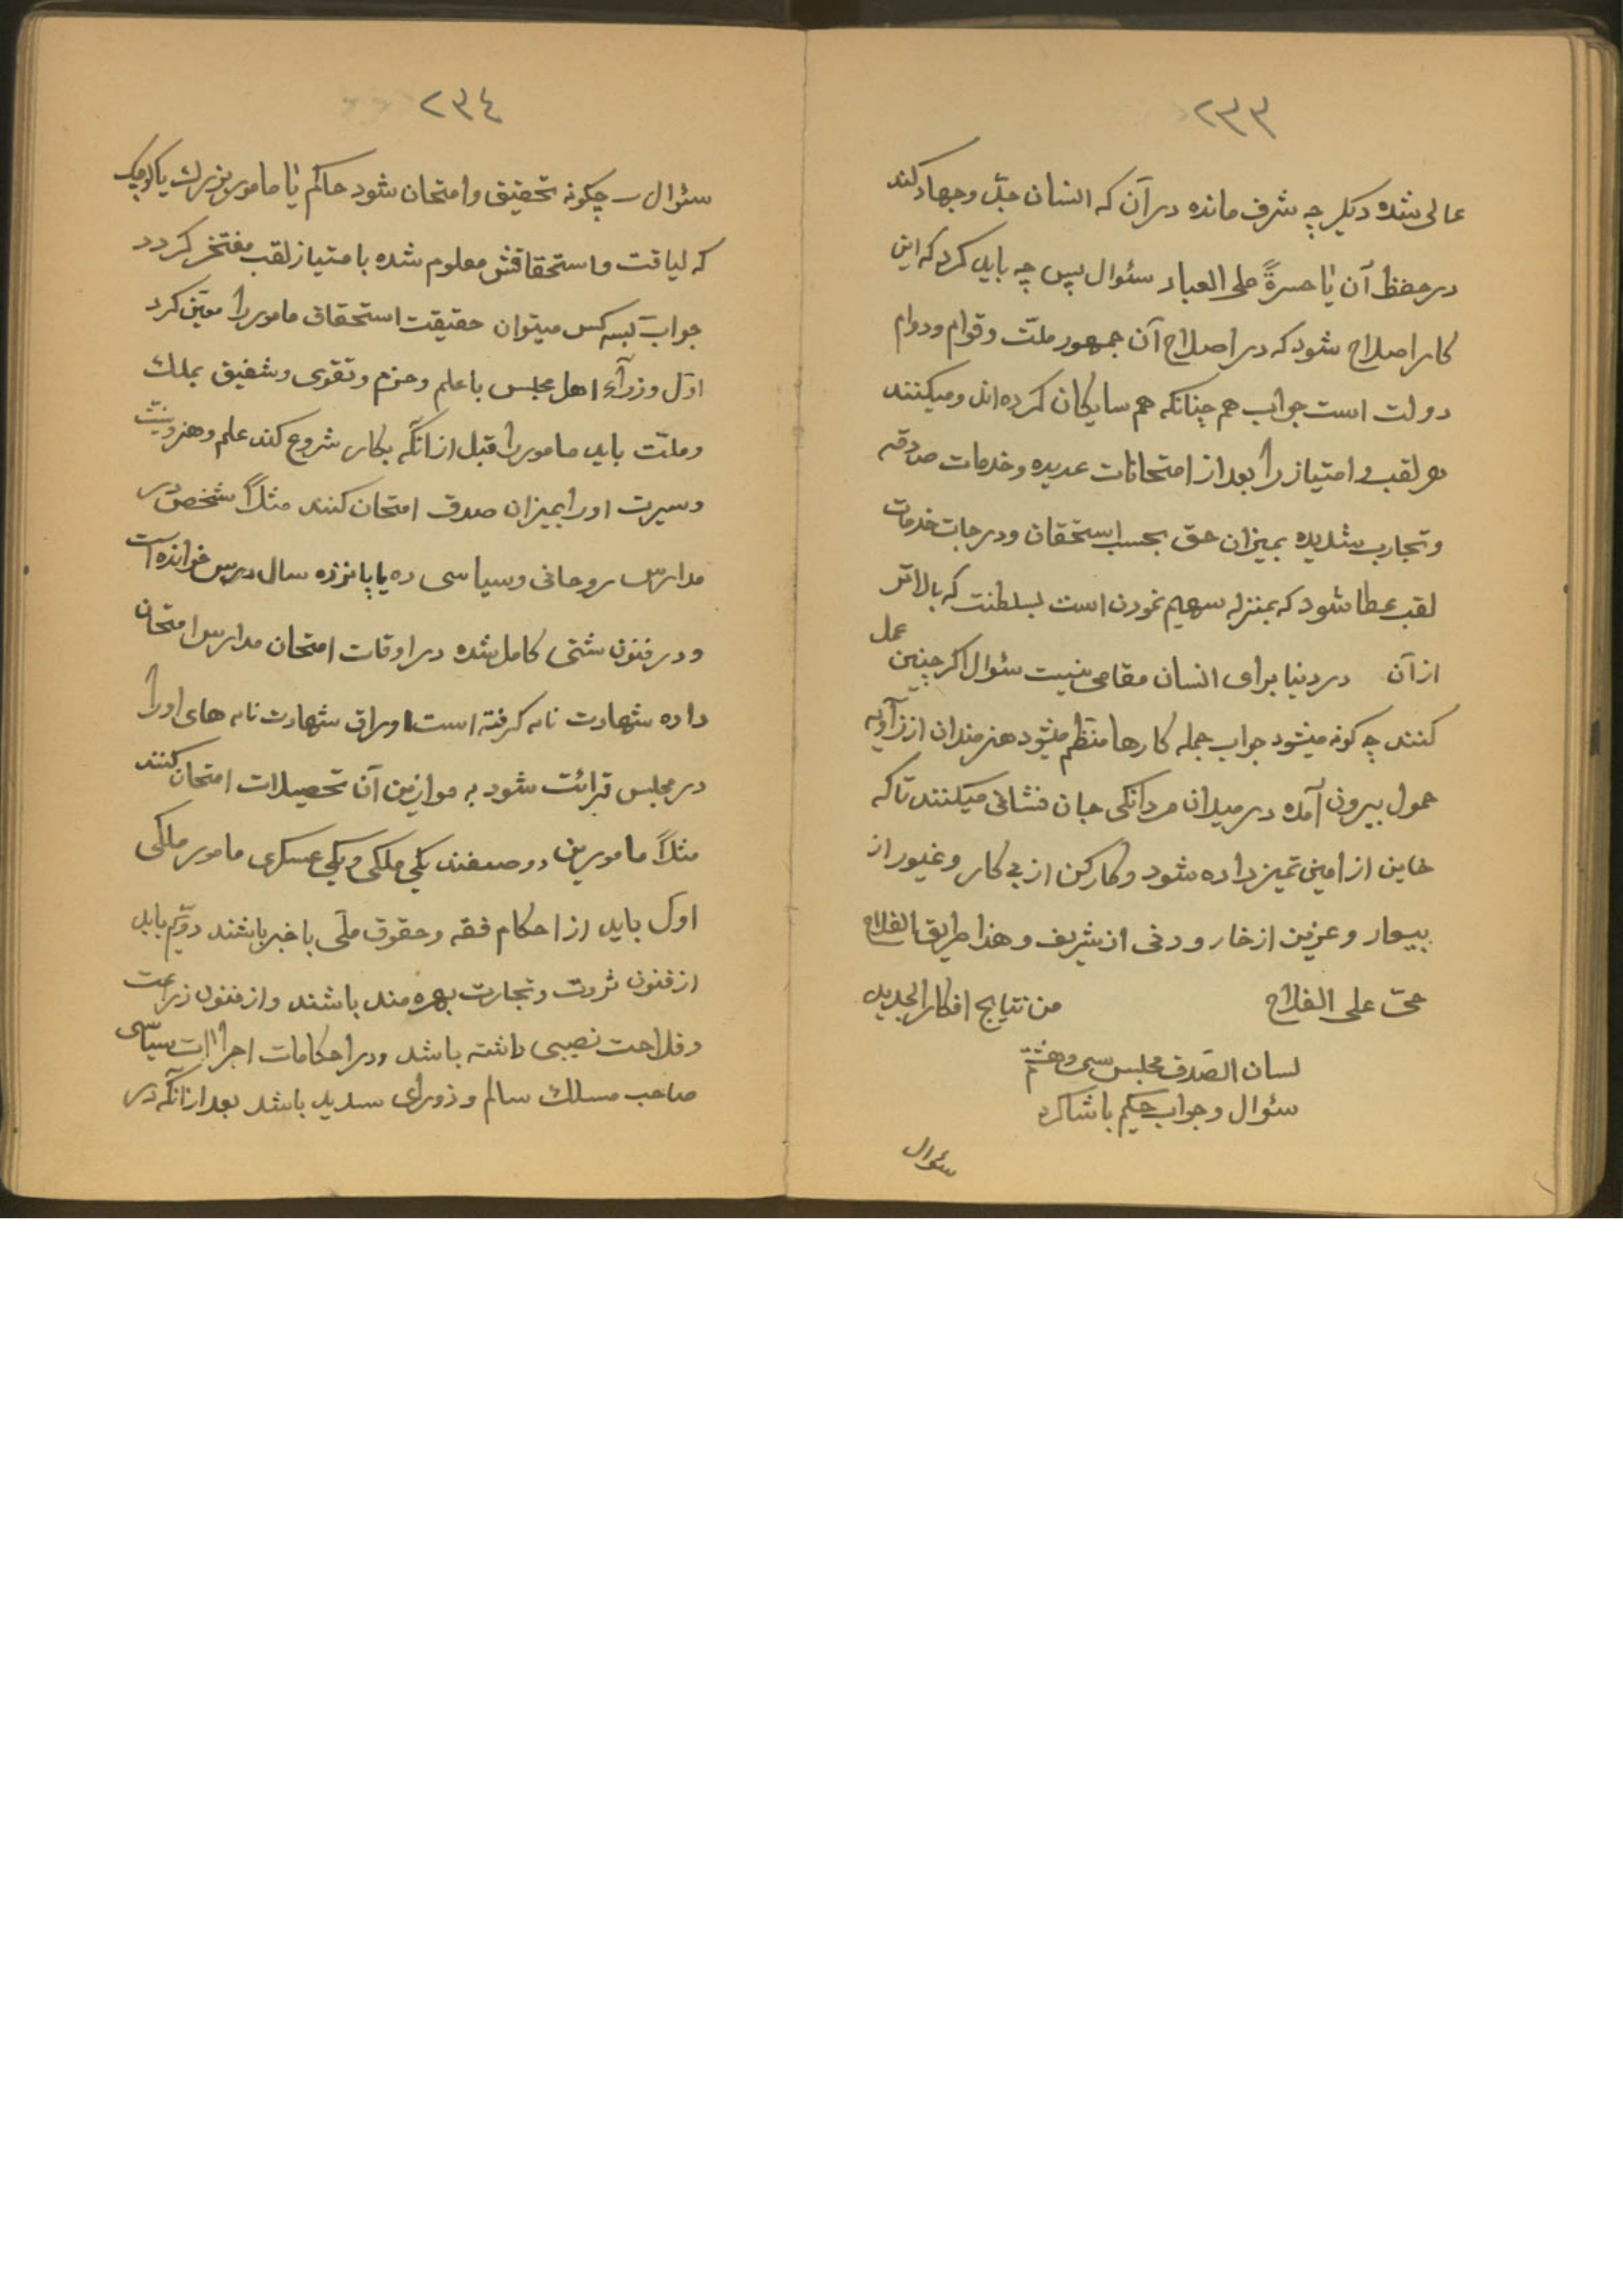 ٢٣٣
عالی شده دیکر چه شرف مانده در آن که انسان جدّ وجهاد کند
در حفظ آن یا حسرةً علی العباد سئوال پس چه باید کرد که این
کار اصلاح شود که در اصلاح آن جمهور ملّت وقوام ودوام
دولت است جواب هم چنانکه هم سایکان کرده اند ومیکنند
هر لقب و امتیاز را بعد از امتحانات عدیده وخدمات صادقه
وتجارب شدیده بمیزان حق بحسب استحقاق ودرجات خدمات
لقب عطا شود که بمنزله سهیم نمودن است بسلطنت که بالاتر
از آن در دنیا برای انسان مقامی نیست سئوال اکر چنین عمل
کنند چه کونه میشود جواب جمله کارها منظم میشود هنرمندان از زاویه
خمول بیرون آمده در میدان مردانکی جان فشانی میکنند تا که
خاین از امین تمیز داده شود وکارکن از بی کار وغیور از
بیعار وعزیز از خار ودنی از شریف وهذا طریق الفلاح
حیّ علی الفلاح من نتایج افکار الجدید
لسان الصّدق مجلس سی وهشتم
سئوال وجواب حکیم با شاکرد
سئوال
٢٣٤
سئوال ــ چکونه تحقیق وامتحان شود حاکم یا مامور بزرك یا کوچك
که لیاقت واستحقاقش معلوم شده با متیاز لقب مفتخر کردد
جواب بسه کس میتوان حقیقت استحقاق مامور را معیّن کرد
اوّل وزرآء اهل مجلس با علم وحزم وتقوی وشفیق بملك
وملّت باید مامور را قبل از آنکه بکار شروع کند علم وهنر ونیّت
وسیرت اورا بمیزان صدق امتحان کنند مثلاً شخص در
مدارس روحانی وسیاسی ده یا پانزده سال درس خوانده است
ودر فنون شتی کامل شده در اوقات امتحان مدارس امتحان
داده شهادت نامه کرفته است اوراق شهادت نامه های اورا
در مجلس قرائت شود به موازین آن تحصیلات امتحان کنند
مثلاً مامورین دو صنفند یکی ملکی ویکی عسکری مامور ملکی
اوّل باید از احکام فقه وحقوق ملّی با خبر باشند دوّیم باید
از فنون ثروت وتجارت بهره مند باشند واز فنون زراعت
وفلاحت نصیبی داشته باشد ودر احکامات اجراآت سیاسی
صاحب مسلك سالم وذورای سدید باشد بعد از آنکه در